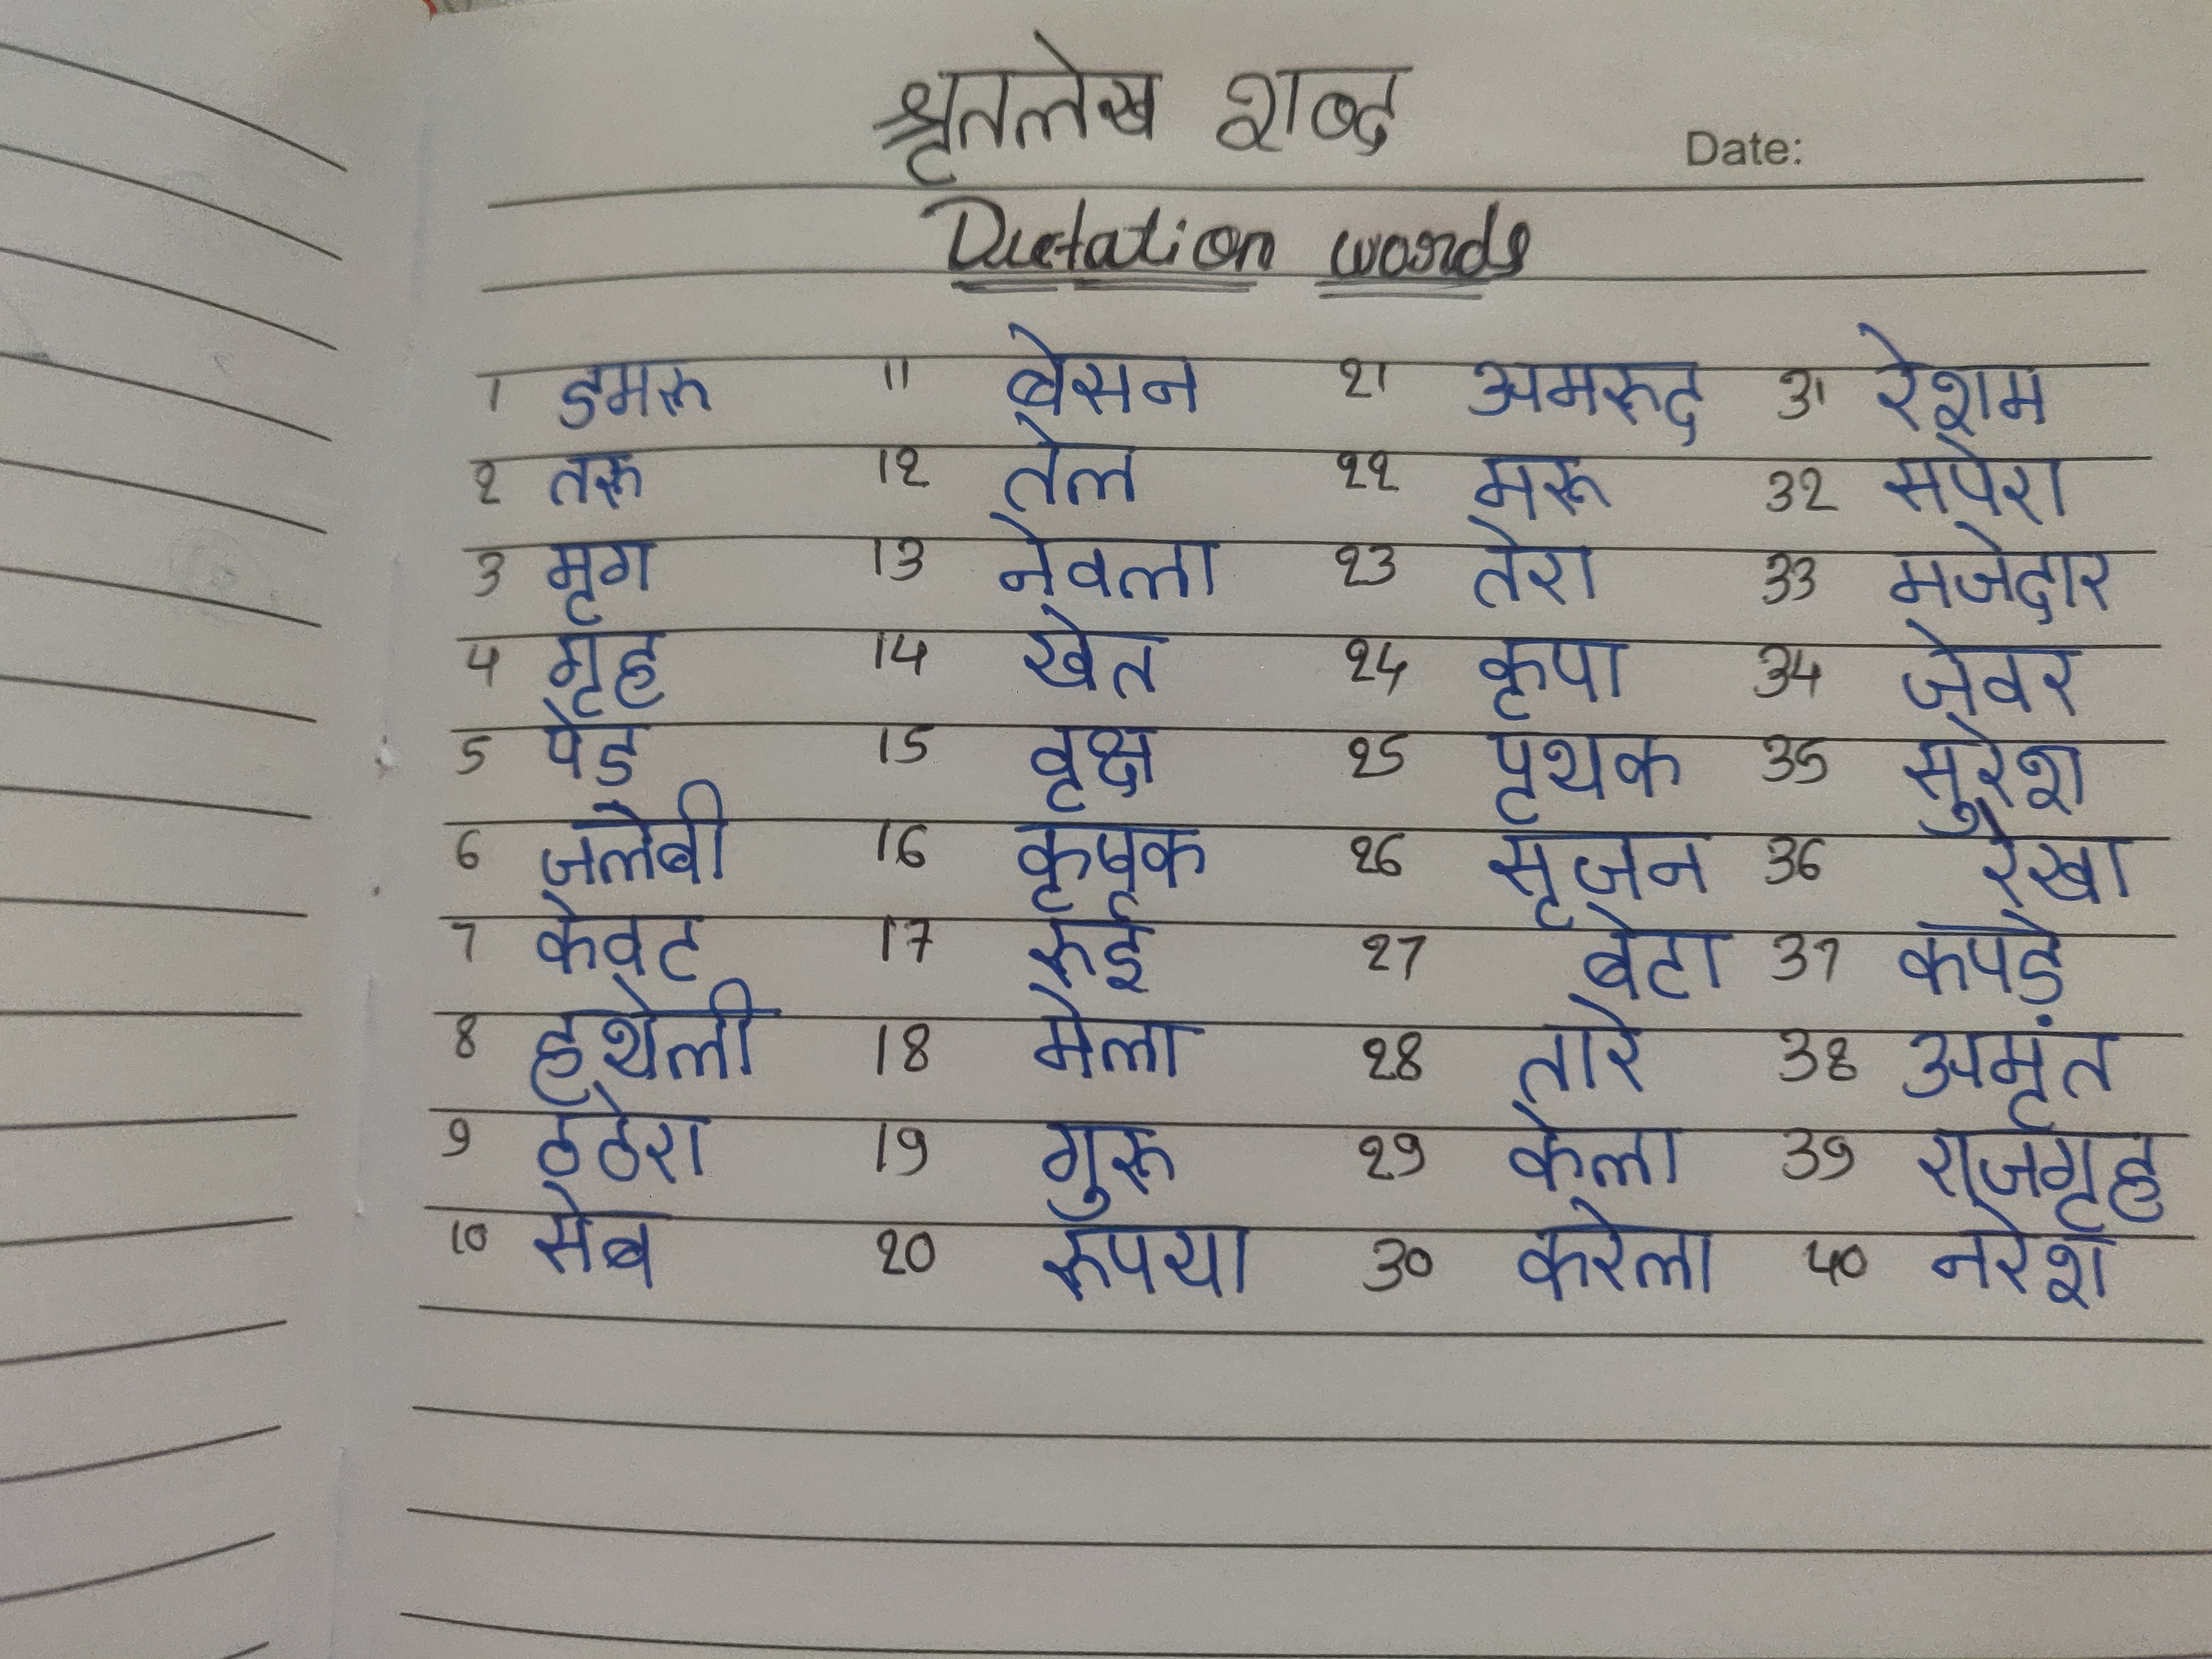 श्रृतलेख शब्द
Date:
Dictation words
1 डमरू 11 बेसन 21 अमरूद 31 रेशम
2 तरू 12 तेल 22 मरू 32 सपेरा
3 मृग 13 नेवला 23 तेरा 33 मजेदार
4 गृह 14 खेत 24 कृपा 34 जेवर
5 पेड 15 वृक्ष 25 पृथक 35 सुरेश
6 जलेबी 16 कृषक 26 सृजन 36 रेखा
7 केवट 17 रूई 27 बेटा 37 कपडे
8 हथेली 18 मेला 28 तारे 38 अमृंत
9 ठठेरा 19 गुरू 29 केला 39 राजगृह
10 सेब 20 रूपया 30 करेला 40 नरेश